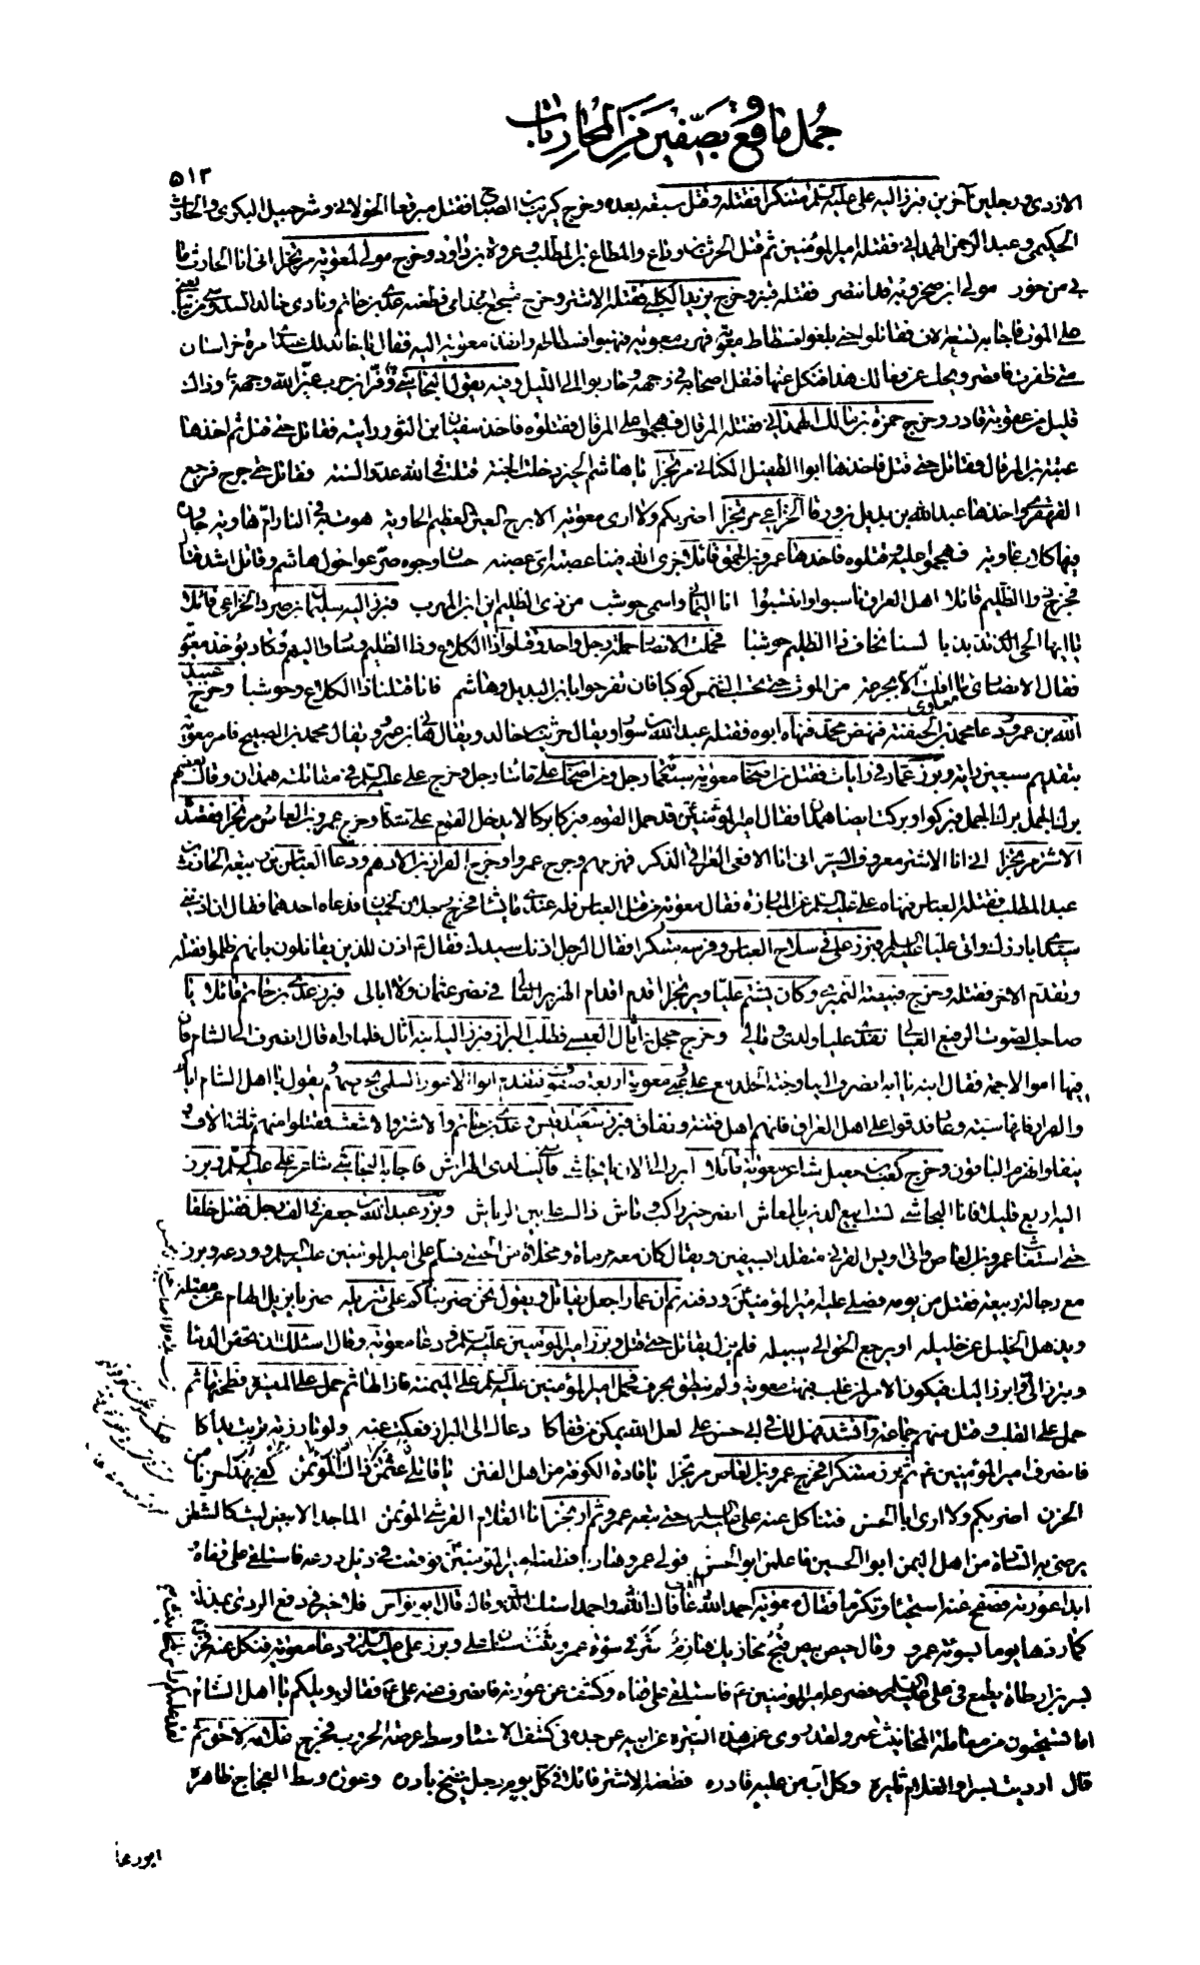 جمل ما وقع بصفين من المحاربات
٥١٣
الازدى ورجلين آخرين فبرز اليه على عليه السلم متنكرا فقتله وقتل سبعة بعده وخرج كريب بن الصباح فقتل مبرقعا الخولانى وشرحبيل البكرى والحارث
الحكيمى وعبد الرحمن الهمدانى فقتله امير المؤمنين ثم قتل الحرث بن وداع والمطاع بن المطلب وعروة بن داود وخرج مولى لمعوية مرتجزا انى انا الحارث ما
بى من خور مولى ابن صخر وبه قد انتصر فقتله قنبر وخرج بريد الكلبى فقتله الاشتر وخرج مشجع الجذامى فطعنه عدى بن حاتم ونادى خالد السدوسى من يبايعنى
على الموت فاجابه تسعة الاف فقاتلوا حتى بلغوا فسطاط معوية فهرب معوية فنهبوا فسطاطه وانفذ معوية اليه فقال يا خالد لك عندى امرة خراسان
متى ظفرت فاقصر ويحك عن فعالك هذا فنكل عنها فتفل اصحابه فى وجهه وحاربوا الى الليل وفيه يقول النجاشى وفر ابن حرب عفر الله وجهه وذاك
قليل من عقوبة قادر وخرج حمزة بن مالك الهمدانى فقتله المرقال فهجموا على المرقال فقتلوه فاخذ سفيان ابن الثور رايته فقاتل حتى قتل ثم اخذها
عتبة بن المرقال فقاتل حتى قتل فاخذها ابو الطفيل الكنانى مرتجزا يا هاشم الخير دخلت الجنة قتلت فى الله عدو السنة فقاتل حتى جرح فرجع
القهقرى واخذها عبد الله بن بديل بن ورقا الخزاعى مرتجزا اضربكم ولا ارى معوية الابرج العين العظيم الحاوية هوت به فى النار ام هاوية جاوره
فيها كلاب عاوية فهجموا عليه فقتلوه فاخذها عمرو بن الحمق قائلا جزى الله فينا عصبة اى عصبة حسان وجوه صرعوا حول هاشم وقاتل اشد قتال
فخرج ذو الظليم قائلا اهل العراق ناسبوا وانتسبوا انا اليمانى واسمى حوشب من ذى الظليم اين اين المهرب فبرز اليه سليمان بن صرد الخزاعى قائلا
يا ايها الحى الذى تذبذبا لسنا نخاف ذا الظليم حوشبا فحملت الانصار حملة رجل واحد وقتلوا ذا الكلاع وذا الظليم وساروا اليهم وكاد يؤخذ معوية
فقال الانصارى معاوى ما افلت الا بجرعة من الموت حتى تحسب الشمس كوكبا فان تفرحوا بابن البديل وهاشم فانا قتلنا ذا الكلاع وحوشبا وخرج عبيد
الله بن عمر ودعا محمد بن الحنفية فنهض محمد فنهاه ابوه فقتله عبد الله بن سوار ويقال حريث بن خالد ويقال هانى بن عمرو ويقال محمد بن الصبيح فامر معوية
بتقديم سبعين راية وبرز عمار فى رايات فقتل من اصحاب معوية سبعمائة رجل ومن اصحاب على مائتا رجل وخرج على عليه السلم فى مقاتلة همدان وقال بعضهم
برك الجمل برك الجمل فبركوا وبركت ايضا همدان فقال امير المؤمنين قد حمل القوم فبركا بركا لا يدخل القوم على ... وخرج عمرو بن العاص مرتجزا فقصده
الاشتر مرتجزا انى انا الاشتر معروف السير انى انا الافعى العراقى الذكر فهزمهم وجرح عمرو وخرج العراد بن الادهم ودعا العباس بن ربيعة بن الحارث بن
عبد المطلب فقتله العباس فنهاه على عليه السلم عن المبارزة فقال معوية من قتل العباس فله عندى ما يشاء فخرج رجلان لخميان فدعاه احدهما فقال ان اذن لى
سيدى ابارزك واتى عليا عليه السلم فبرز على فى سلاح العباس وفرسه متنكرا فقال الرجل اذنك سيدك فقال ع اذن للذين يقاتلون بانهم ظلموا فقتله
وتقدم الاخر فقتله وخرج قبيصة النميرى وكان يشتم عليا ويرتجز اقدم اقدام الهزبر العالى فى نصر عثمان ولا ابالى فبرز عدى بن حاتم قائلا يا
صاحب الصوت الرفيع العالى نفدى عليا ولدى ومالى وخرج حجل بن اثال العبسى فطلب البراز فبرز اليه ابنه اثال فلما راه قال انصرف الى الشام فان
فيها اموالا جمة فقال ابنه يا ابه انصرف الينا وجنة الخلد مع على وعبى معوية اربعة صفوف فتقدم ابو الاعور السلمى ... يقول يا اهل الشام اياكم
والفرار فانها سبة وعار فدقوا على اهل العراق فانهم اهل فتنة ونفاق فبرز سعيد بن قيس وعدى بن حاتم والاشتر والاشعث فقتلوا منهم ثلثة الاف
ونيفا وانهزم الباقون وخرج كعب بن جعيل شاعر معوية قائلا ابرز الى الان يا نجاشى فاننى ليث لدى الهراش فاجابه النجاشى شاعر على عليه السلم وبرز
اليه اربع قليلا فانا النجاشى لست ابيع الدين بالمعاش انصر خير راكب وماش ذاك على بين الرياش وبرز عبد الله بن جعفر فى الف رجل فقتل خلقا
حتى استغاث عمرو بن العاص واتى اويس القرنى متقلدا بسيفين ويقال كان معه مرماة ومخلاة من الحصى فسلم على امير المؤمنين عليه السلم وودعه وبرز
مع رجالة ربيعة فقتل من يومه فصلى عليه امير المؤمنين ودفنه ثم ان عمارا جعل يقاتل ويقول نحن ضربناكم على تنزيله ضربا يزيل الهام عن مقيله
ويذهل الخليل عن خليله او يرجع الحق الى سبيله فلم يزل يقاتل حتى قتل وبرز امير المؤمنين عليه السلم ودعا معوية وقال اسئلك ان تحقن الدماء
وتبرز الى وابرز اليك فيكون الامر لمن غلب فبهت معوية ولم ينطق بحرف فحمل امير المؤمنين عليه السلم على الميمنة فازالها ثم حمل على الميسرة فطحنها ثم
حمل على القلب وقتل منهم جماعة وانشد فهل لك فى ابى حسن على لعل الله يمكن من قفاكا دعاك الى البراز فعكت عنه ولو بارزته تربت يداكا
فانصرف امير المؤمنين ع ثم برز متنكرا فخرج عمرو بن العاص مرتجزا يا قادة الكوفة من اهل الفتن يا قاتلى عثمان ذاك المؤتمن كفى بهذا حزنا من
الحزن اضربكم ولا ارى ابا الحسن فتناكل عنه على عليه السلم حتى تبعه عمرو ثم ارتجز انا الغلام القرشى المؤتمن الماجد الابيض ليث كالشطن
يرضى به السادة من اهل اليمن ابو الحسين فاعلمن ابو الحسن فولى عمرو هاربا فطعنه امير المؤمنين فوقعت فى ذيل درعه فاستلقى على قفاه
ابدا عورته فصفح عنه استحياء وتكرما فقال معوية احمد الله الذى عافاك واحمد استك الذى وقاك قال ابو نواس فلا خير فى دفع الردى بمذلة
كما ردها يوما بسوءته عمرو وقال حيص بيص قبح مخازيك هازم شرفى سوءة عمرو ثنت سنان على وبرز على عليه السلم ودعا معوية فنكل عنه فخرج
بسر بن ارطاة يطمع فى على عليه السلم فضربه امير المؤمنين ع فاستلقى على قفاه وكشف عن عورته فانصرف عنه على ع فقال ويلكم يا اهل الشام
اما تستحيون من معاملة المخانيث عمرو ولقد روى عن هذه السيرة عن ابيه عن جده فى كشف الاستاه وسط عرصة الحروب فخرج غلامه لاحق ثم
قال ارديت بسرا والغلام ثايره وكل آب من عليه قادره فطعنه الاشتر قائلا فى كل يوم رجل شيخ بادره وعورة وسط العجاج ظاهرة